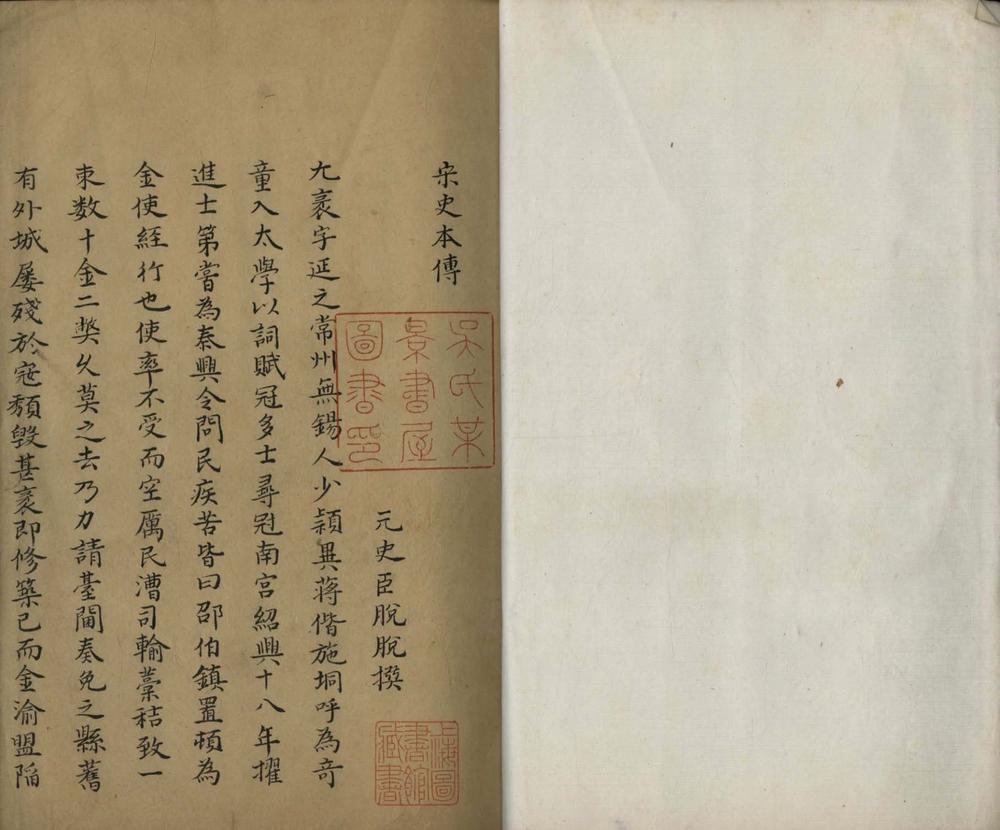 宋史本傳
元史臣脫脫撰
尤袤字延之常州無錫人少頴異蔣偕施坰呼為竒
童入太學以詞賦冠多士尋冠南宮紹興十八年擢
進士第嘗為泰興令問民疾苦皆曰邵伯鎮置頓為
金使経行也使率不受而空厲民漕司輸藁秸致一
束数十金二獘久莫之去乃力請䑓閫奏免之縣舊
有外城屡殘於寇頽毀甚袤即修築已而金渝盟陷
吳氏某
景書屋
圖書印
上海圖
書館
藏書